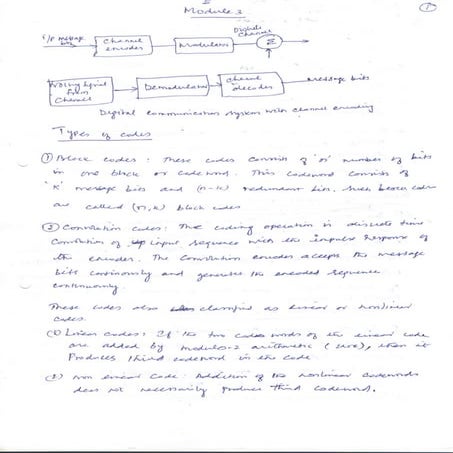 Module 3
①
I/P message bits
Channel encoder
Modulator
Discrete Channel
Σ
Noisy signal from Channel
Demodulator
Channel decoder
message bits
Digital communication system with channel encoding
Types of codes
① Block codes : These codes consists of 'n' number of bits
in one block or codeword. This codeword consists of
'k' message bits and (n-k) redundant bits. Such block codes
are called (n, k) block codes
② Convolution codes : The coding operation is discrete time
Convolution of input sequence with the impulse response of
the encoder. The Convolution encoder accepts the message
bits continuously and generates the encoded sequence
continuously.
These codes also classified as linear or nonlinear
codes.
① Linear codes : If the two code words of the linear code
are added by modulo-2 arithmetic, then it
Produces third codeword in the code
② Non linear Code : Addition of the nonlinear codewords
does not necessarily produce third codeword.